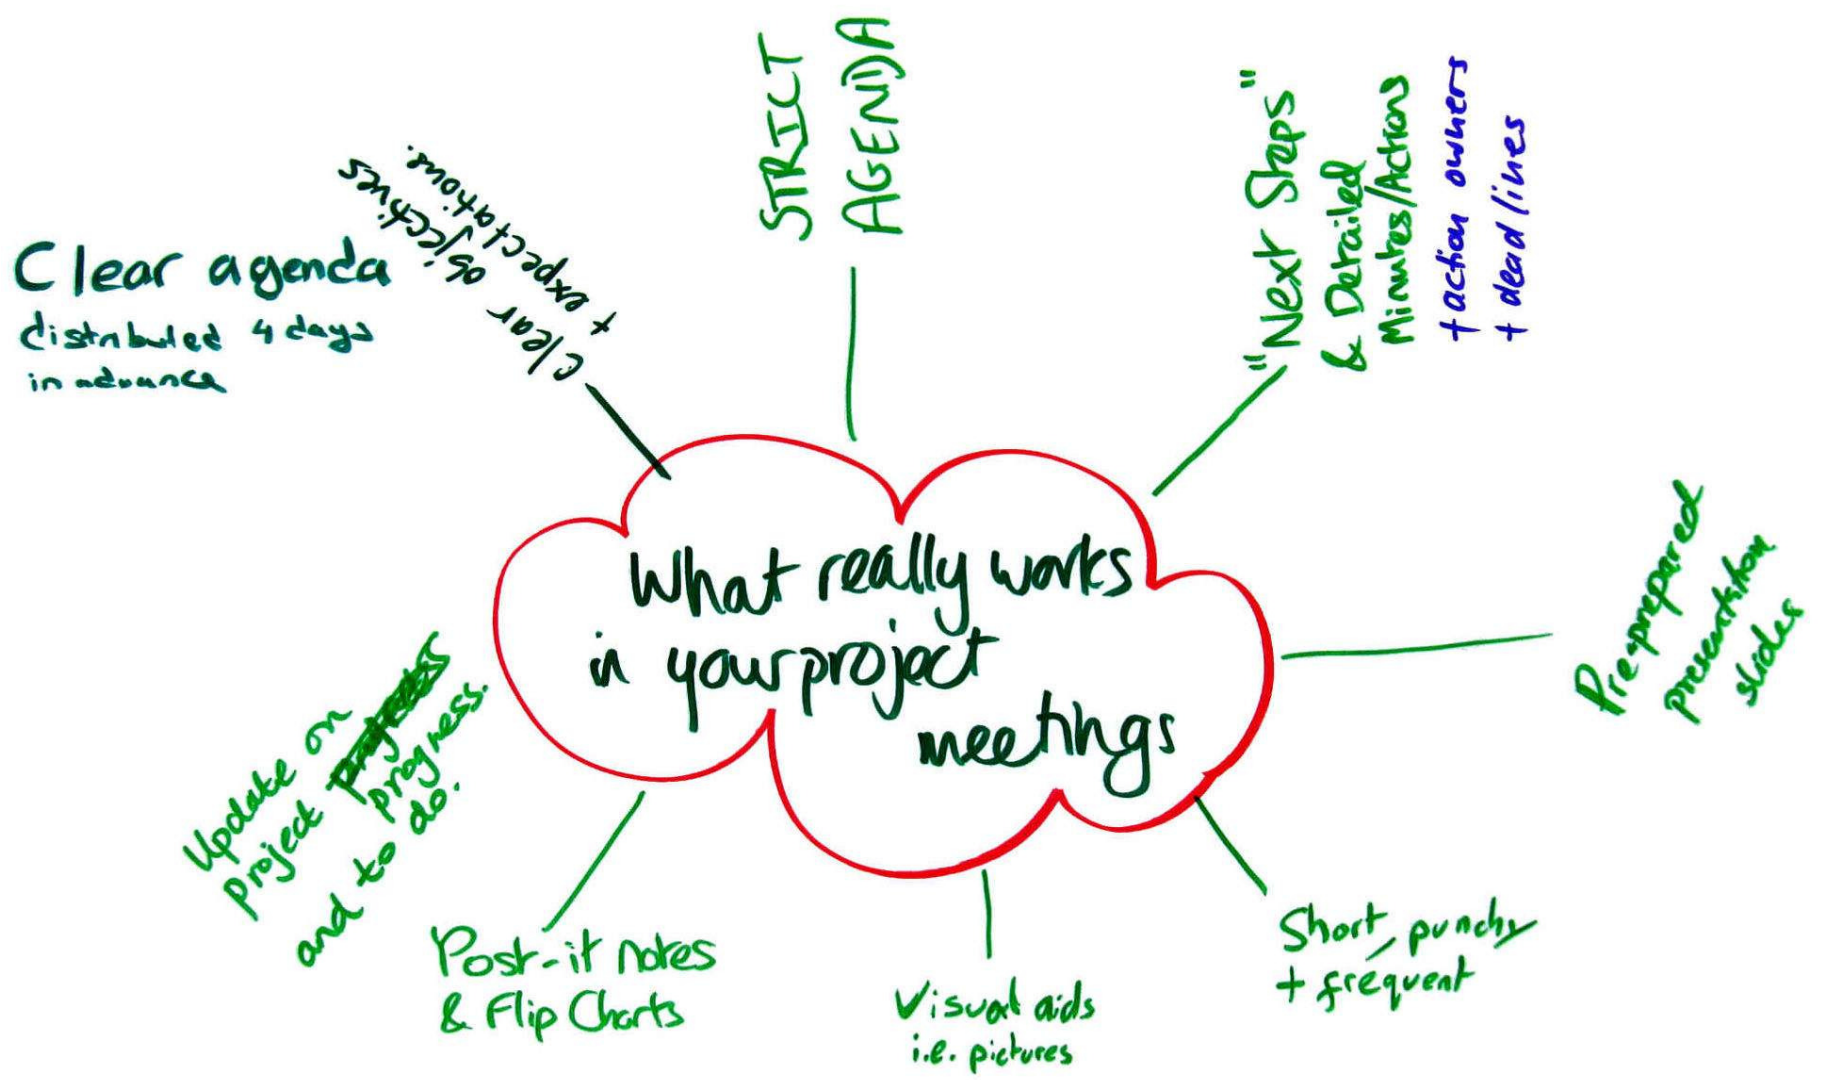 What really works
in your project
meetings
Clear agenda
distributed 4 days
in advance
clear objectives
+ expectations.
STRICT
AGENDA
"Next Steps"
& Detailed
Minutes/Actions
+ action owners
+ deadlines
Pre-prepared
presentation
slides
Short, punchy
+ frequent
Visual aids
i.e. pictures
Post-it notes
& Flip Charts
Update on
project progress.
and to do.